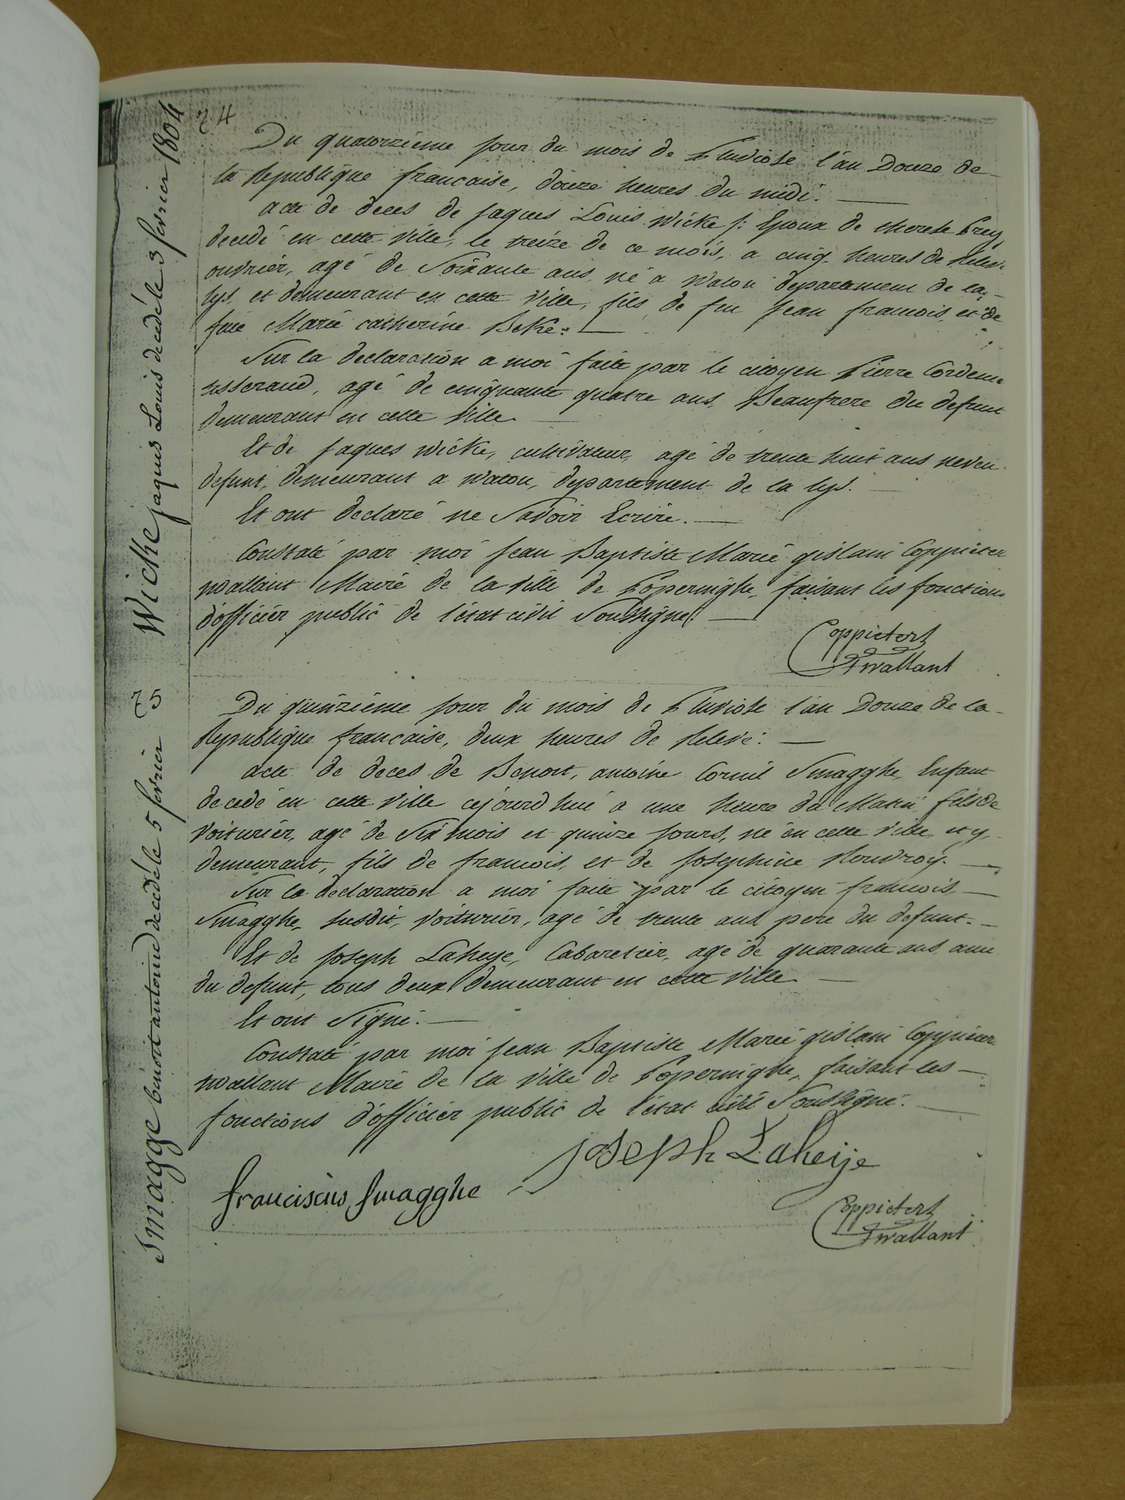 74
Wicke jaques Louis decedé le 3 fevrier 1804
Du quatorzieme jour du mois de Pluviose l'an Douze de
la Republique francaise, douze heures du midi.
acte de deces de Jaques Louis Wicke Epoux de therese
decedé en cette Ville, le treize de ce mois, a cinq heures de Relevé
ouvrier, agé de Soixante ans, né a Watou departement de la
lys, et demeurant en cette Ville, fils de feu Jean francois, et de
feue Marie catherine Beke.
Sur la declaration a moi faite par le citoyen Pierre
tisserand, agé de cinquante quatre ans Beaufrere du defunt
demeurant en cette Ville
Et de Jaques Wicke, cultivateur, agé de trente huit ans neveu
defunt, demeurant a Watou, departement de la lys.
Et ont declaré ne Savoir Ecrire.
Constaté par moi Jean Baptiste Marie gislain Coppieters
Wallant Maire de la Ville de Poperinghe, faisant les fonctions
d'officier public de l'état civil Soussigné.
Coppieters
Wallant
75
Smagge benoit antoine decedé le 5 fevrier
Du quinzieme jour du mois de Pluviose l'an Douze de la
Republique francaise, deux heures de Relevé.
acte de deces de Benoit, antoine Cornil Smagghe, Enfant
decedé en cette Ville cejourd'hui a une heure du Matin fils de
Voiturier, agé de Six mois et quinze jours, né en cette Ville et y
demeurant, fils de francois, et de Josephine
Sur la declaration a moi faite par le citoyen francois
Smagghe, susdit, Voiturier, agé de trente ans pere du defunt.
Et de Joseph Laheije, Cabaretier, agé de quarante ans ami
du defunt, tous deux demeurant en cette Ville
Et ont Signé.
Constaté par moi Jean Baptiste Marie gislain Coppieters
Wallant Maire de la Ville de Poperinghe, faisant les
fonctions d'officier public de l'état civil Soussigné.
Joseph Laheije
franciscus Smagghe
Coppieters
Wallant